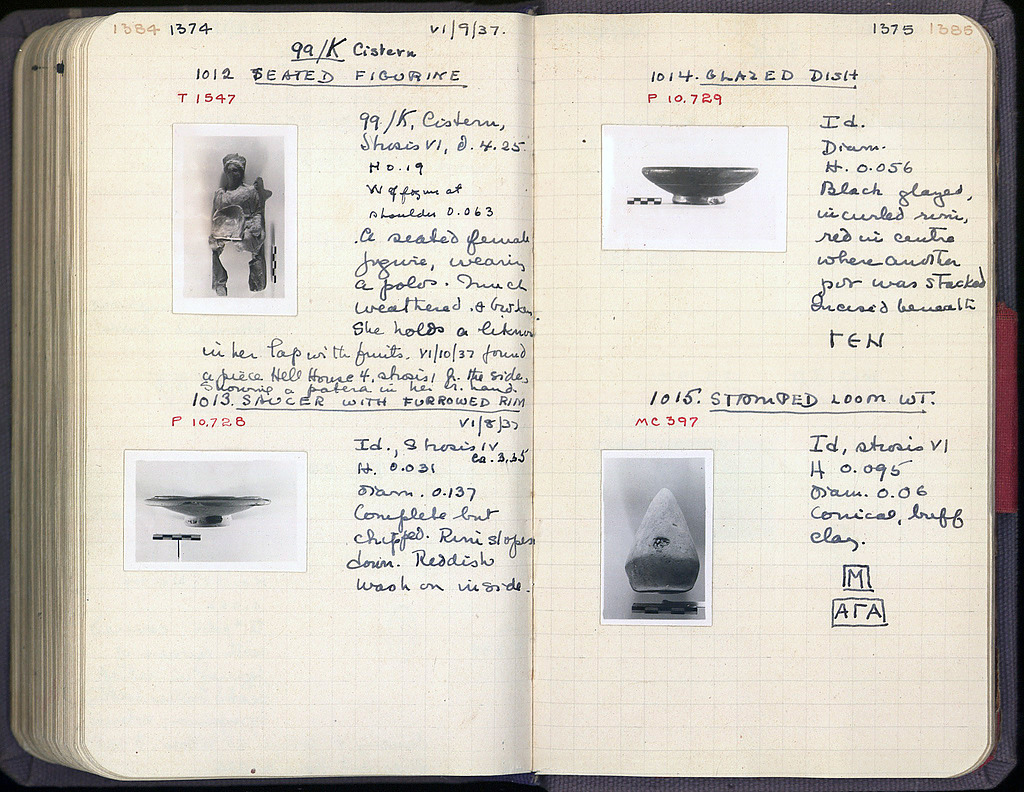 1384 1374 VI/9/37.
99/K Cistern
1012 SEATED FIGURINE
T 1547
99/K, Cistern,
Strosis VI, d. 4.25
H 0.19
W of figure at
shoulder 0.063
A seated female
figure, wearing
a polos. Much
weathered & broken
She holds a liknon
in her lap with fruits. VI/10/37 found
a piece Hell House 4, strosis I fr. the side,
showing a patera in her r. hand.
1013. SAUCER WITH FURROWED RIM
P 10,728 VI/8/37
Id., Strosis IV
ca. 3.35
H. 0.031
Diam. 0.137
Complete but
chipped. Rim slopes
down. Reddish
wash on inside.
1375 1385
1014. GLAZED DISH
P 10,729
Id.
Diam.
H. 0.056
Black glazed,
incurled rim,
red in centre
where another
pot was stacked
Incised beneath
ΓΕΗ
1015. STAMPED LOOM WT.
MC 397
Id, strosis VI
H 0.095
Diam. 0.06
Conical, buff
clay.
M
ΑΓΑ